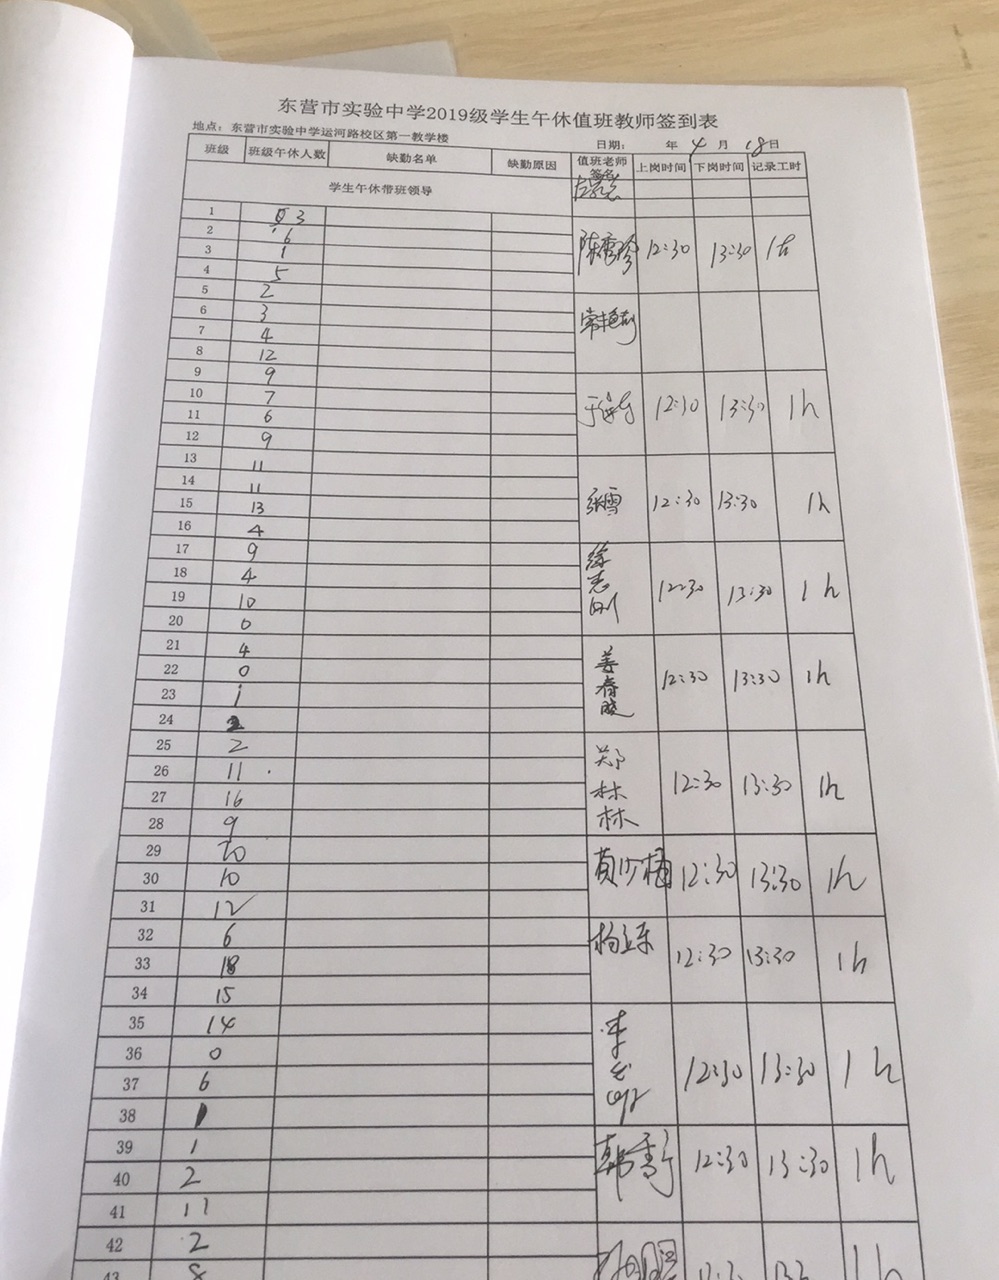 东营市实验中学2019级学生午休值班教师签到表
地点：东营市实验中学运河路校区第一教学楼 日期： 年 4 月 18 日
班级 班级午休人数 缺勤名单 缺勤原因 值班老师签名 上岗时间 下岗时间 记录工时
学生午休带班领导
1 3
2 6
3 1 陈秀珍 12:30 13:30
4 5
5 2
6 3
7 4
8 12
9 9
10 7
11 6 12:30 13:30 1h
12 9
13 11
14 11
15 13 张雪 12:30 13:30 1h
16 4
17 9
18 4
19 10 徐志刚 12:30 13:30 1h
20 0
21 4
22 0
23 1 姜春晓 12:30 13:30 1h
24 2
25 2
26 11
27 16 郑林林 12:30 13:30 1h
28 9
29 10
30 10 12:30 13:30 1h
31 12
32 6
33 18 12:30 13:30 1h
34 15
35 14
36 0
37 6 12:30 13:30 1h
38 1
39 1
40 2 韩秀 12:30 13:30 1h
41 11
42 2
43 8 1h